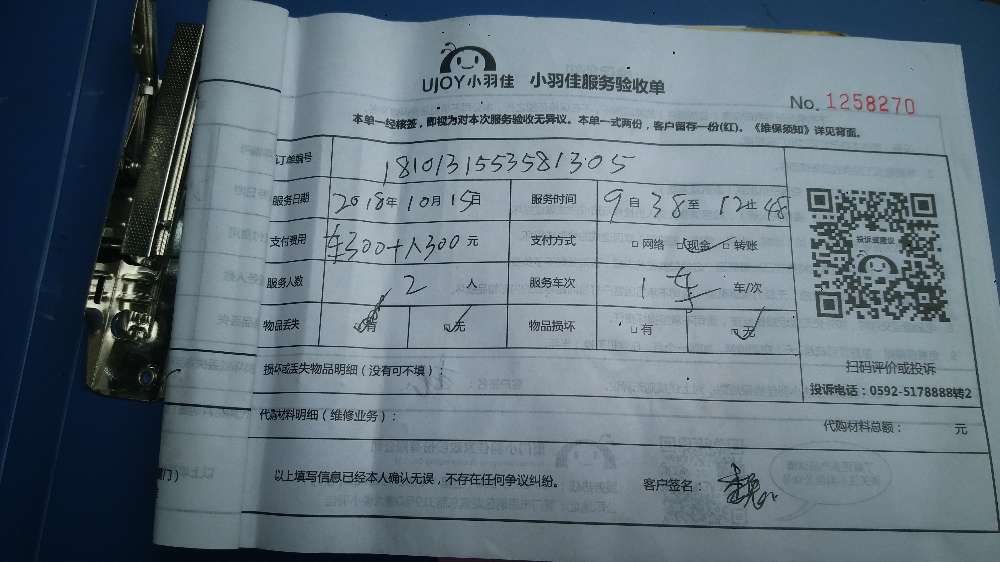 UJOY小羽佳 小羽佳服务验收单
No. 1258270
本单一经核签，即视为对本次服务验收无异议。本单一式两份，客户留存一份(红)。《维保须知》详见背面。
订单编号 1810131553581305
服务日期 2018年10月15日 服务时间 9自38至12止48
支付费用 车300+人300元 支付方式 □网络 □现金 □转账
投诉或建议
服务人数 2 人 服务车次 1车 车/次
物品丢失 □有 □无 物品损坏 □有 □无
扫码评价或投诉
损坏或丢失物品明细（没有可不填）：
投诉电话：0592-5178888转2
代购材料明细（维修业务）： 代购材料总额： 元
以上填写信息已经本人确认无误，不存在任何争议纠纷。 客户签名：